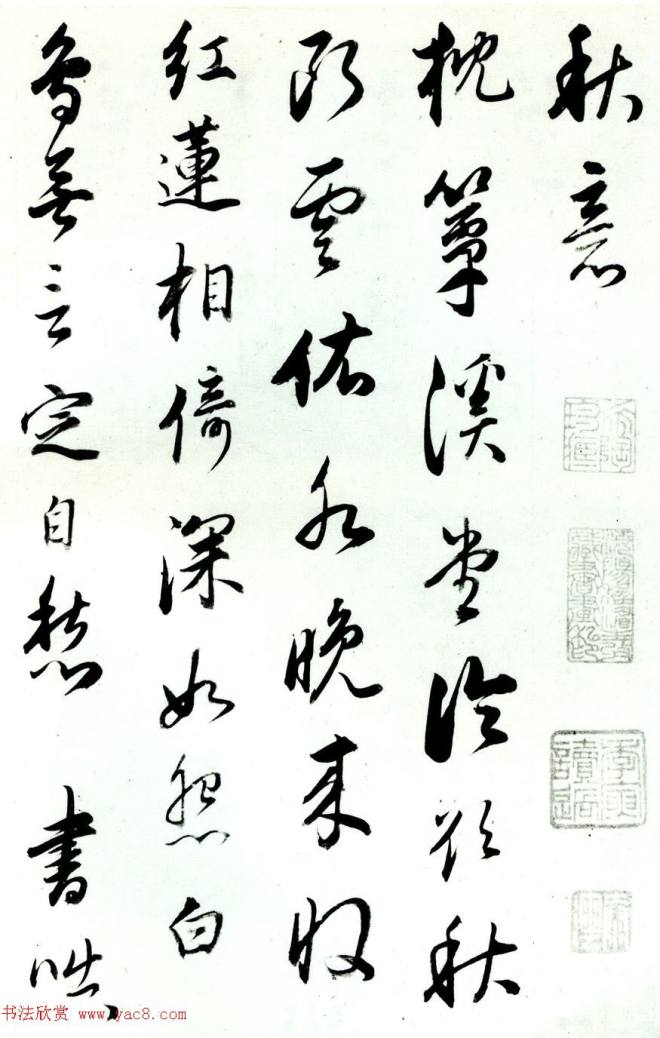 秋意
枕簟溪堂冷欲秋
斷雲依水晚來收
紅蓮相倚深如怨白
鳥無言定自愁 書咄〻
书法欣赏 www.yac8.com